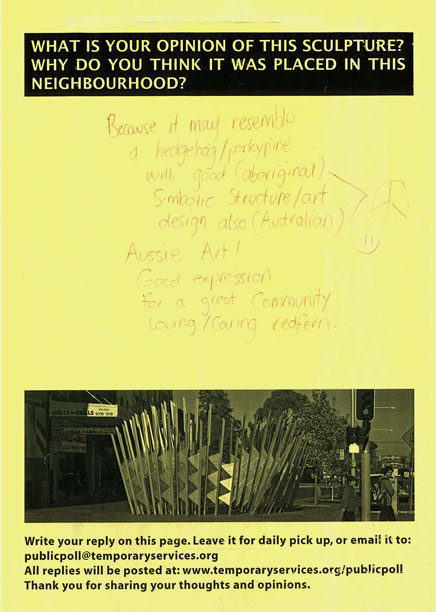 WHAT IS YOUR OPINION OF THIS SCULPTURE?
WHY DO YOU THINK IT WAS PLACED IN THIS
NEIGHBOURHOOD?
Because it may resemble
a hedgehog/porkypine
with good (aboriginal)
Simbolic Structure/art
design also (Australian)
Aussie Art!
Good expression
for a great Community
loving/Caring redfern.
Write your reply on this page. Leave it for daily pick up, or email it to:
publicpoll@temporaryservices.org
All replies will be posted at: www.temporaryservices.org/publicpoll
Thank you for sharing your thoughts and opinions.